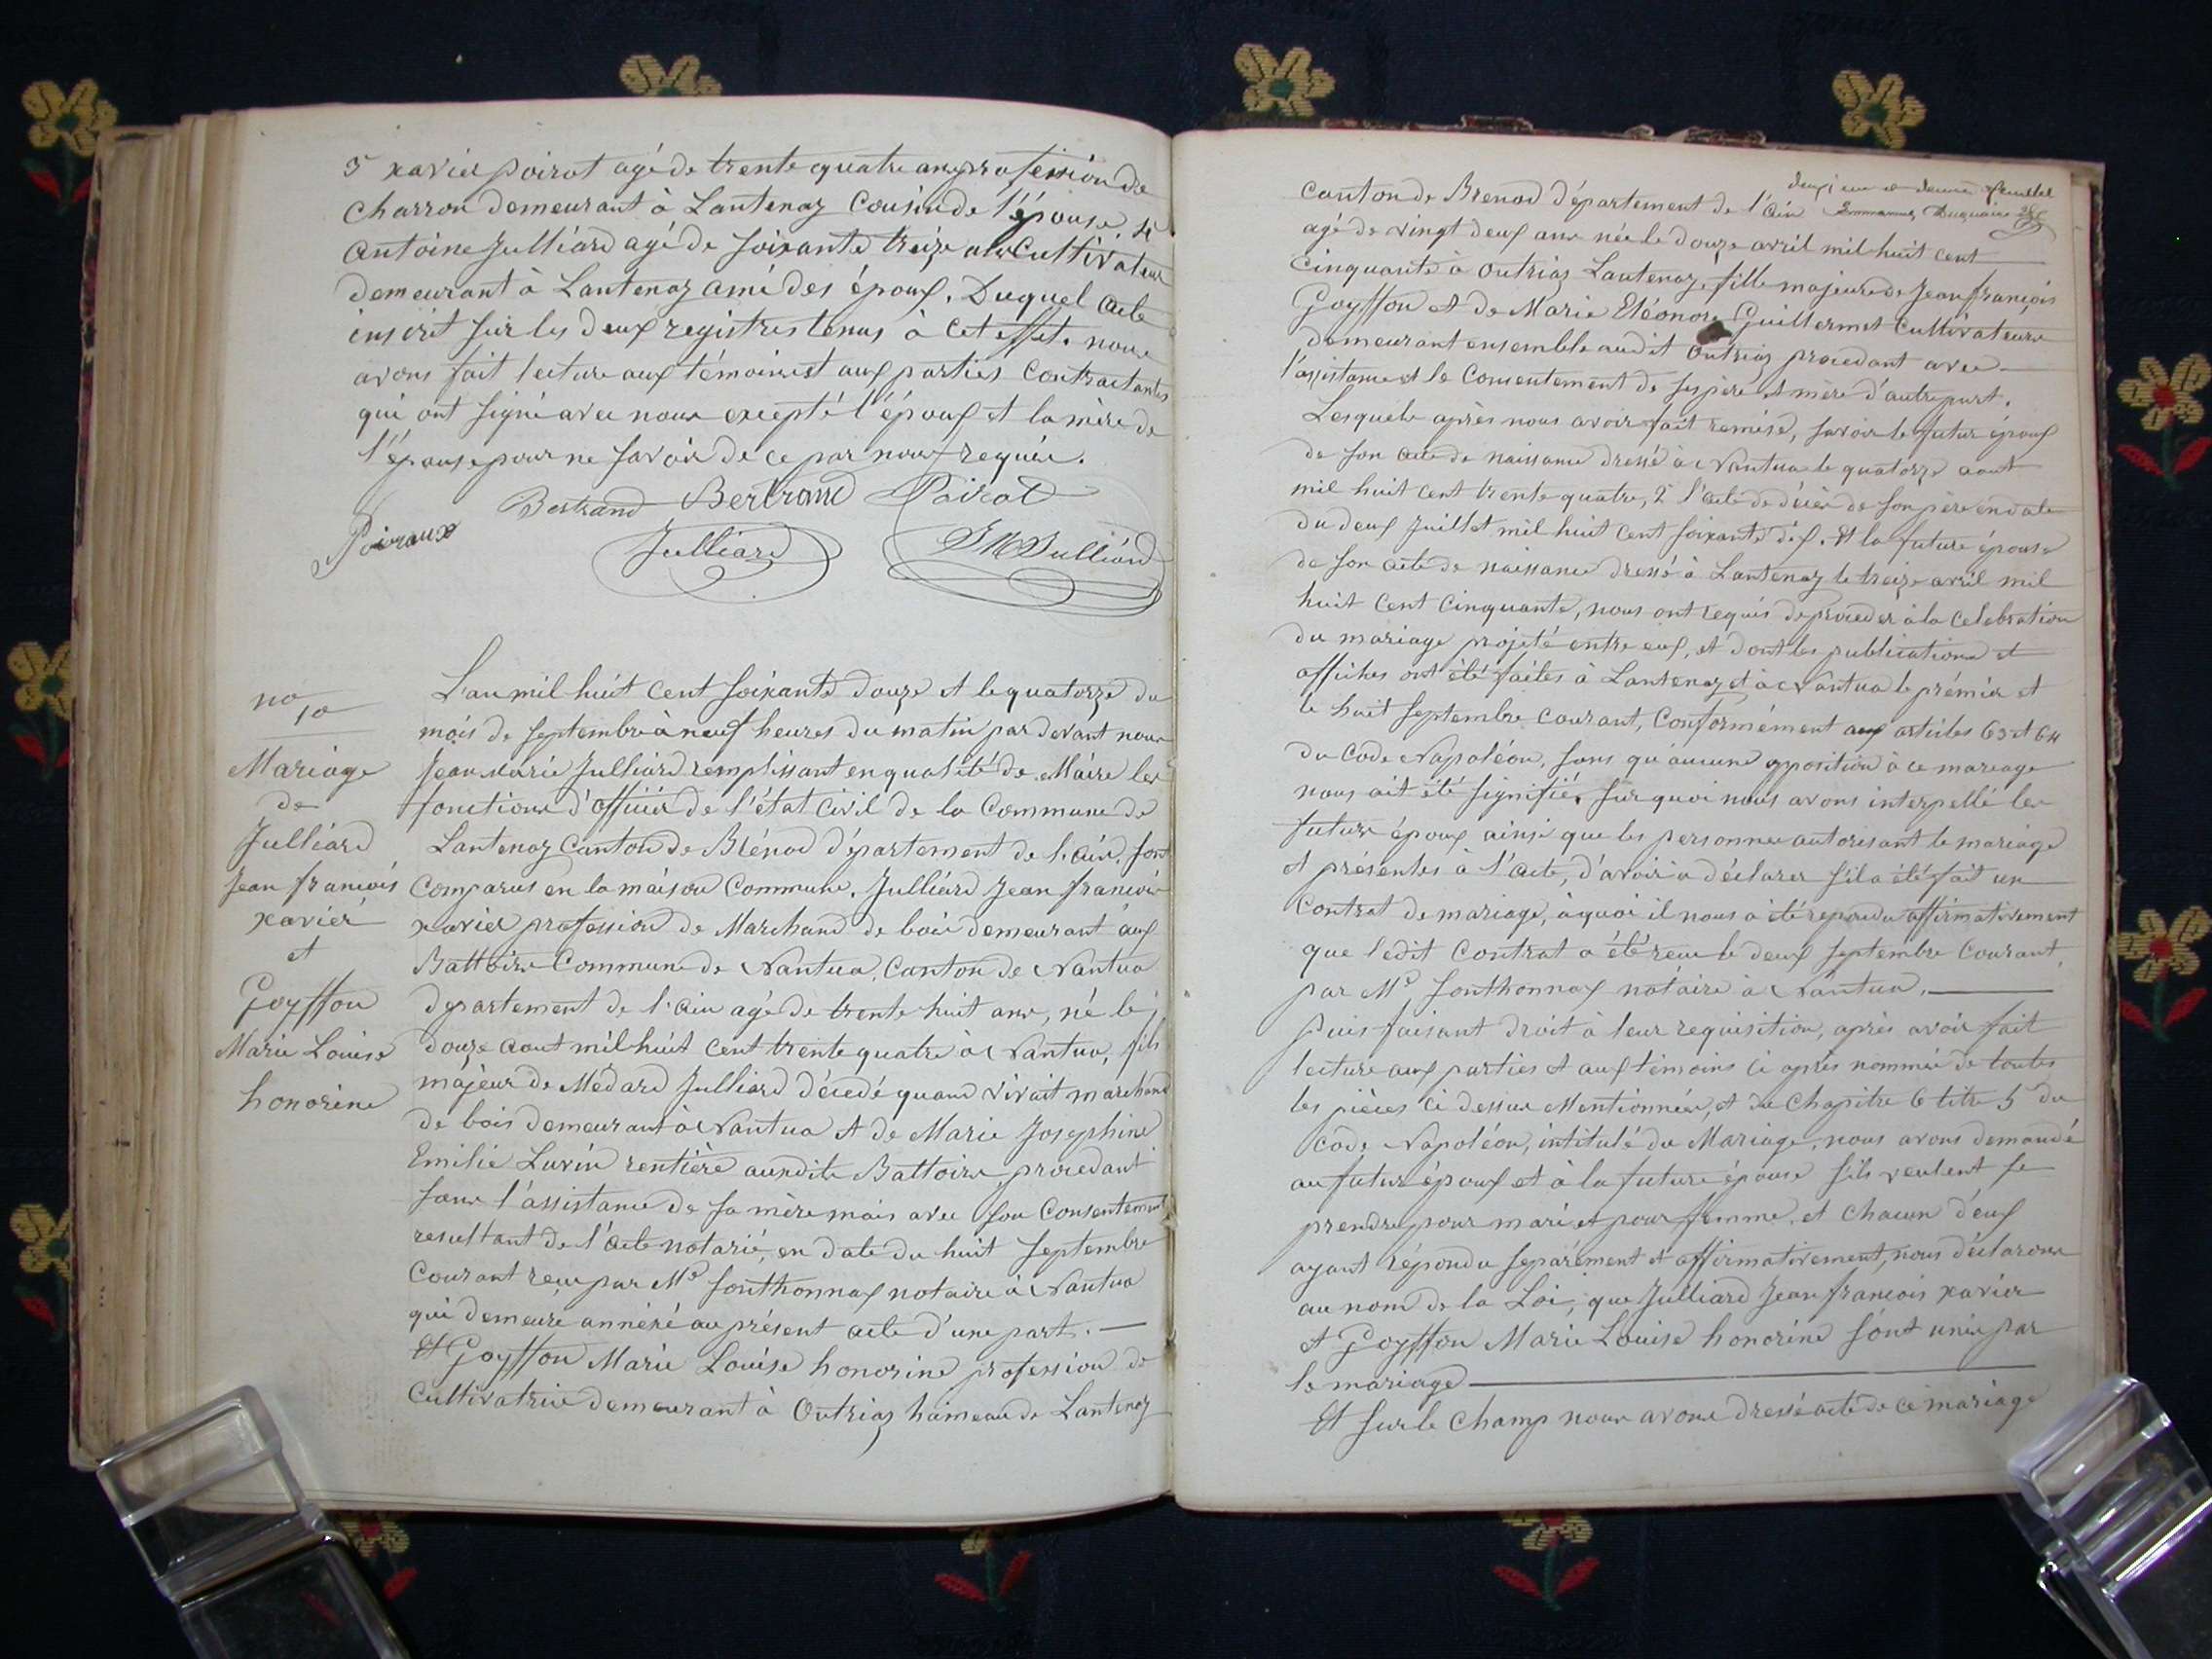 3° xavier Poirot agé de trente quatre ans profession de
Charron demeurant à Lantenay Cousin de l'épouse, 4°
Antoine Julliard agé de soixante treize ans Cultivateur
demeurant à Lantenay ami des époux. Duquel acte
inscrit sur les deux registres tenus à cet effet. nous
avons fait lecture aux témoins et aux parties Contractantes
qui ont signé avec nous excepté l'époux et la mère de
l'épouse pour ne savoir de ce par nous requis.
Bertrand Bertrand Poirot
Poiraux
Julliard JM Julliard
no 10
Mariage
de
Julliard
Jean françois
xavier
et
Goyffon
Marie Louise
honorine
L'an mil huit Cent soixante douze et le quatorze du
mois de septembre à neuf heures du matin par devant nous
Jean Marie Julliard remplissant en qualité de Maire les
fonctions d'officier de l'état Civil de la Commune de
Lantenay Canton de Brénod département de l'ain, sont
Comparus en la maison Commune. Julliard Jean françois
xavier profession de Marchand de bois demeurant aux
Battoirs Commune de Nantua, Canton de Nantua
departement de l'ain agé de trente huit ans, né le
douze aout mil huit cent trente quatre à Nantua, fils
majeur de Médard Julliard décedé quand vivait marchand
de bois demeurant à Nantua et de Marie Josephine
Emilie Luvin rentière auxdits Battoirs, procedant
sans l'assistance de sa mère mais avec son Consentement
resultant de l'acte notarié, en date du huit septembre
Courant reçu par Me Jonthonnax notaire à Nantua
qui demeure annéxé au présent acte d'une part. —
Et Goyffon Marie Louise honorine profession de
Cultivatrice demeurant à Outriaz hameau de Lantenay
canton de Brenod département de l'ain
agé de vingt deux ans née le douze avril mil huit cent
Cinquante à Outriaz Lantenay, fille majeure de Jean françois
Goyffon et de Marie Eléonore Guillermet Cultivateurs
demeurant ensemble audit Outriaz procedant avec
l'assistance et le Consentement de ses père et mère d'autre part.
Lesquels après nous avoir fait remise, savoir le futur époux
de son acte de naissance dressé à Nantua le quatorze aout
mil huit cent trente quatre, 2° l'acte de décès de son père en date
du deux Juillet mil huit Cent soixante dix. Et la future épouse
de son acte de naissance dressé à Lantenay le treize avril mil
huit Cent Cinquante, nous ont requis de proceder à la Celebration
du mariage projeté entre eux, et dont les publications et
affiches ont été faites à Lantenay et à Nantua le prémier et
le huit septembre Courant, Conformément aux articles 63 et 64
du Code Napoléon, sans qu'aucune opposition à ce mariage
nous ait été signifié. sur quoi nous avons interpellé les
futurs époux ainsi que les personnes autorisant le mariage
et présentes à l'acte, d'avoir à déclarer s'il a été fait un
Contrat de mariage, à quoi il nous a été repondu affirmativement
que ledit Contrat a été reçu le deux septembre Courant,
par Me Jonthonnax notaire à Nantua. —
Puis faisant droit à leur requisition, après avoir fait
lecture aux parties et aux témoins ci après nommés de toutes
les pièces ci dessus Mentionnées, et du Chapitre 6 titre 5 du
Code Napoléon, intitulé du Mariage, nous avons demandé
au futur époux et à la future épouse s'ils veulent se
prendre pour mari et pour femme, et Chacun d'eux
ayant répondu separément et affirmativement, nous déclarons
au nom de la Loi, que Julliard Jean françois xavier
et Goyffon Marie Louise honorine sont unis par
le mariage —
Et sur le Champ nous avons dressé acte de ce mariage